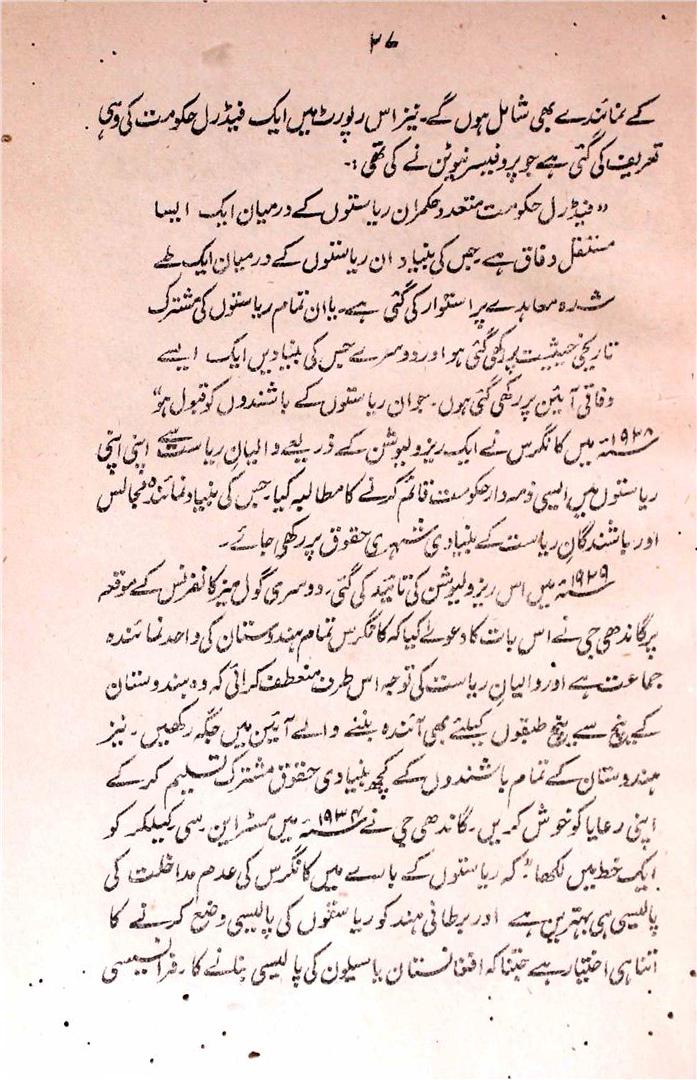 ۳۷
کے نمائندے بھی شامل ہوں گے۔ نیز اس رپورٹ میں ایک فیڈرل حکومت کی وہی
تعریف کی گئی ہے جو پروفیسر نیوٹن نے کی تھی :۔
"فیڈرل حکومت متعدد حکمران ریاستوں کے درمیان ایک ایسا
مستقل وفاق ہے جس کی بنیاد ان ریاستوں کے درمیان ایک طے
شدہ معاہدے پر استوار کی گئی ہے۔ یا ان تمام ریاستوں کی مشترک
تاریخی حیثیت پر رکھی گئی ہو اور دوسرے جس کی بنیادیں ایک ایسے
وفاقی آئین پر رکھی گئی ہوں۔ جو ان ریاستوں کے باشندوں کو قبول ہو"
۱۹۳۸ء میں کانگرس نے ایک ریزولیوشن کے ذریعے والیان ریاست سے اپنی اپنی
ریاستوں میں ایسی ذمہ دار حکومت قائم کرنے کا مطالبہ کیا۔ جس کی بنیاد نمائندہ مجالس
اور باشندگانِ ریاست کے بنیادی شہری حقوق پر رکھی جائے۔
۱۹۲۹ء میں اس ریزولیوشن کی تائید کی گئی۔ دوسری گول میز کانفرنس کے موقعہ
پر گاندھی جی نے اس بات کا دعوےٰ کیا کہ کانگرس تمام ہندوستان کی واحد نمائندہ
جماعت ہے اور والیان ریاست کی توجہ اس طرف منعطف کرائی کہ وہ ہندوستان
کے نیچ سے نیچ طبقوں کیلئے بھی آئندہ بننے والے آئین میں جگہ رکھیں۔ نیز
ہندوستان کے تمام باشندوں کے کچھ بنیادی حقوق مشترک تسلیم کر کے
اپنی رعایا کو خوش کریں۔ گاندھی جی نے ۱۹۳۴ء میں مسٹر این۔ سی کیلکر کو
ایک خط میں لکھا" کہ ریاستوں کے بارے میں کانگرس کی عدم مداخلت کی
پالیسی ہی بہترین ہے اور برطانی ہند کو ریاستوں کی پالیسی وضع کرنے کا
اتنا ہی اختیار ہے جتنا کہ افغانستان یا سیلون کی پالیسی بنانے کا۔ فرانسیسی